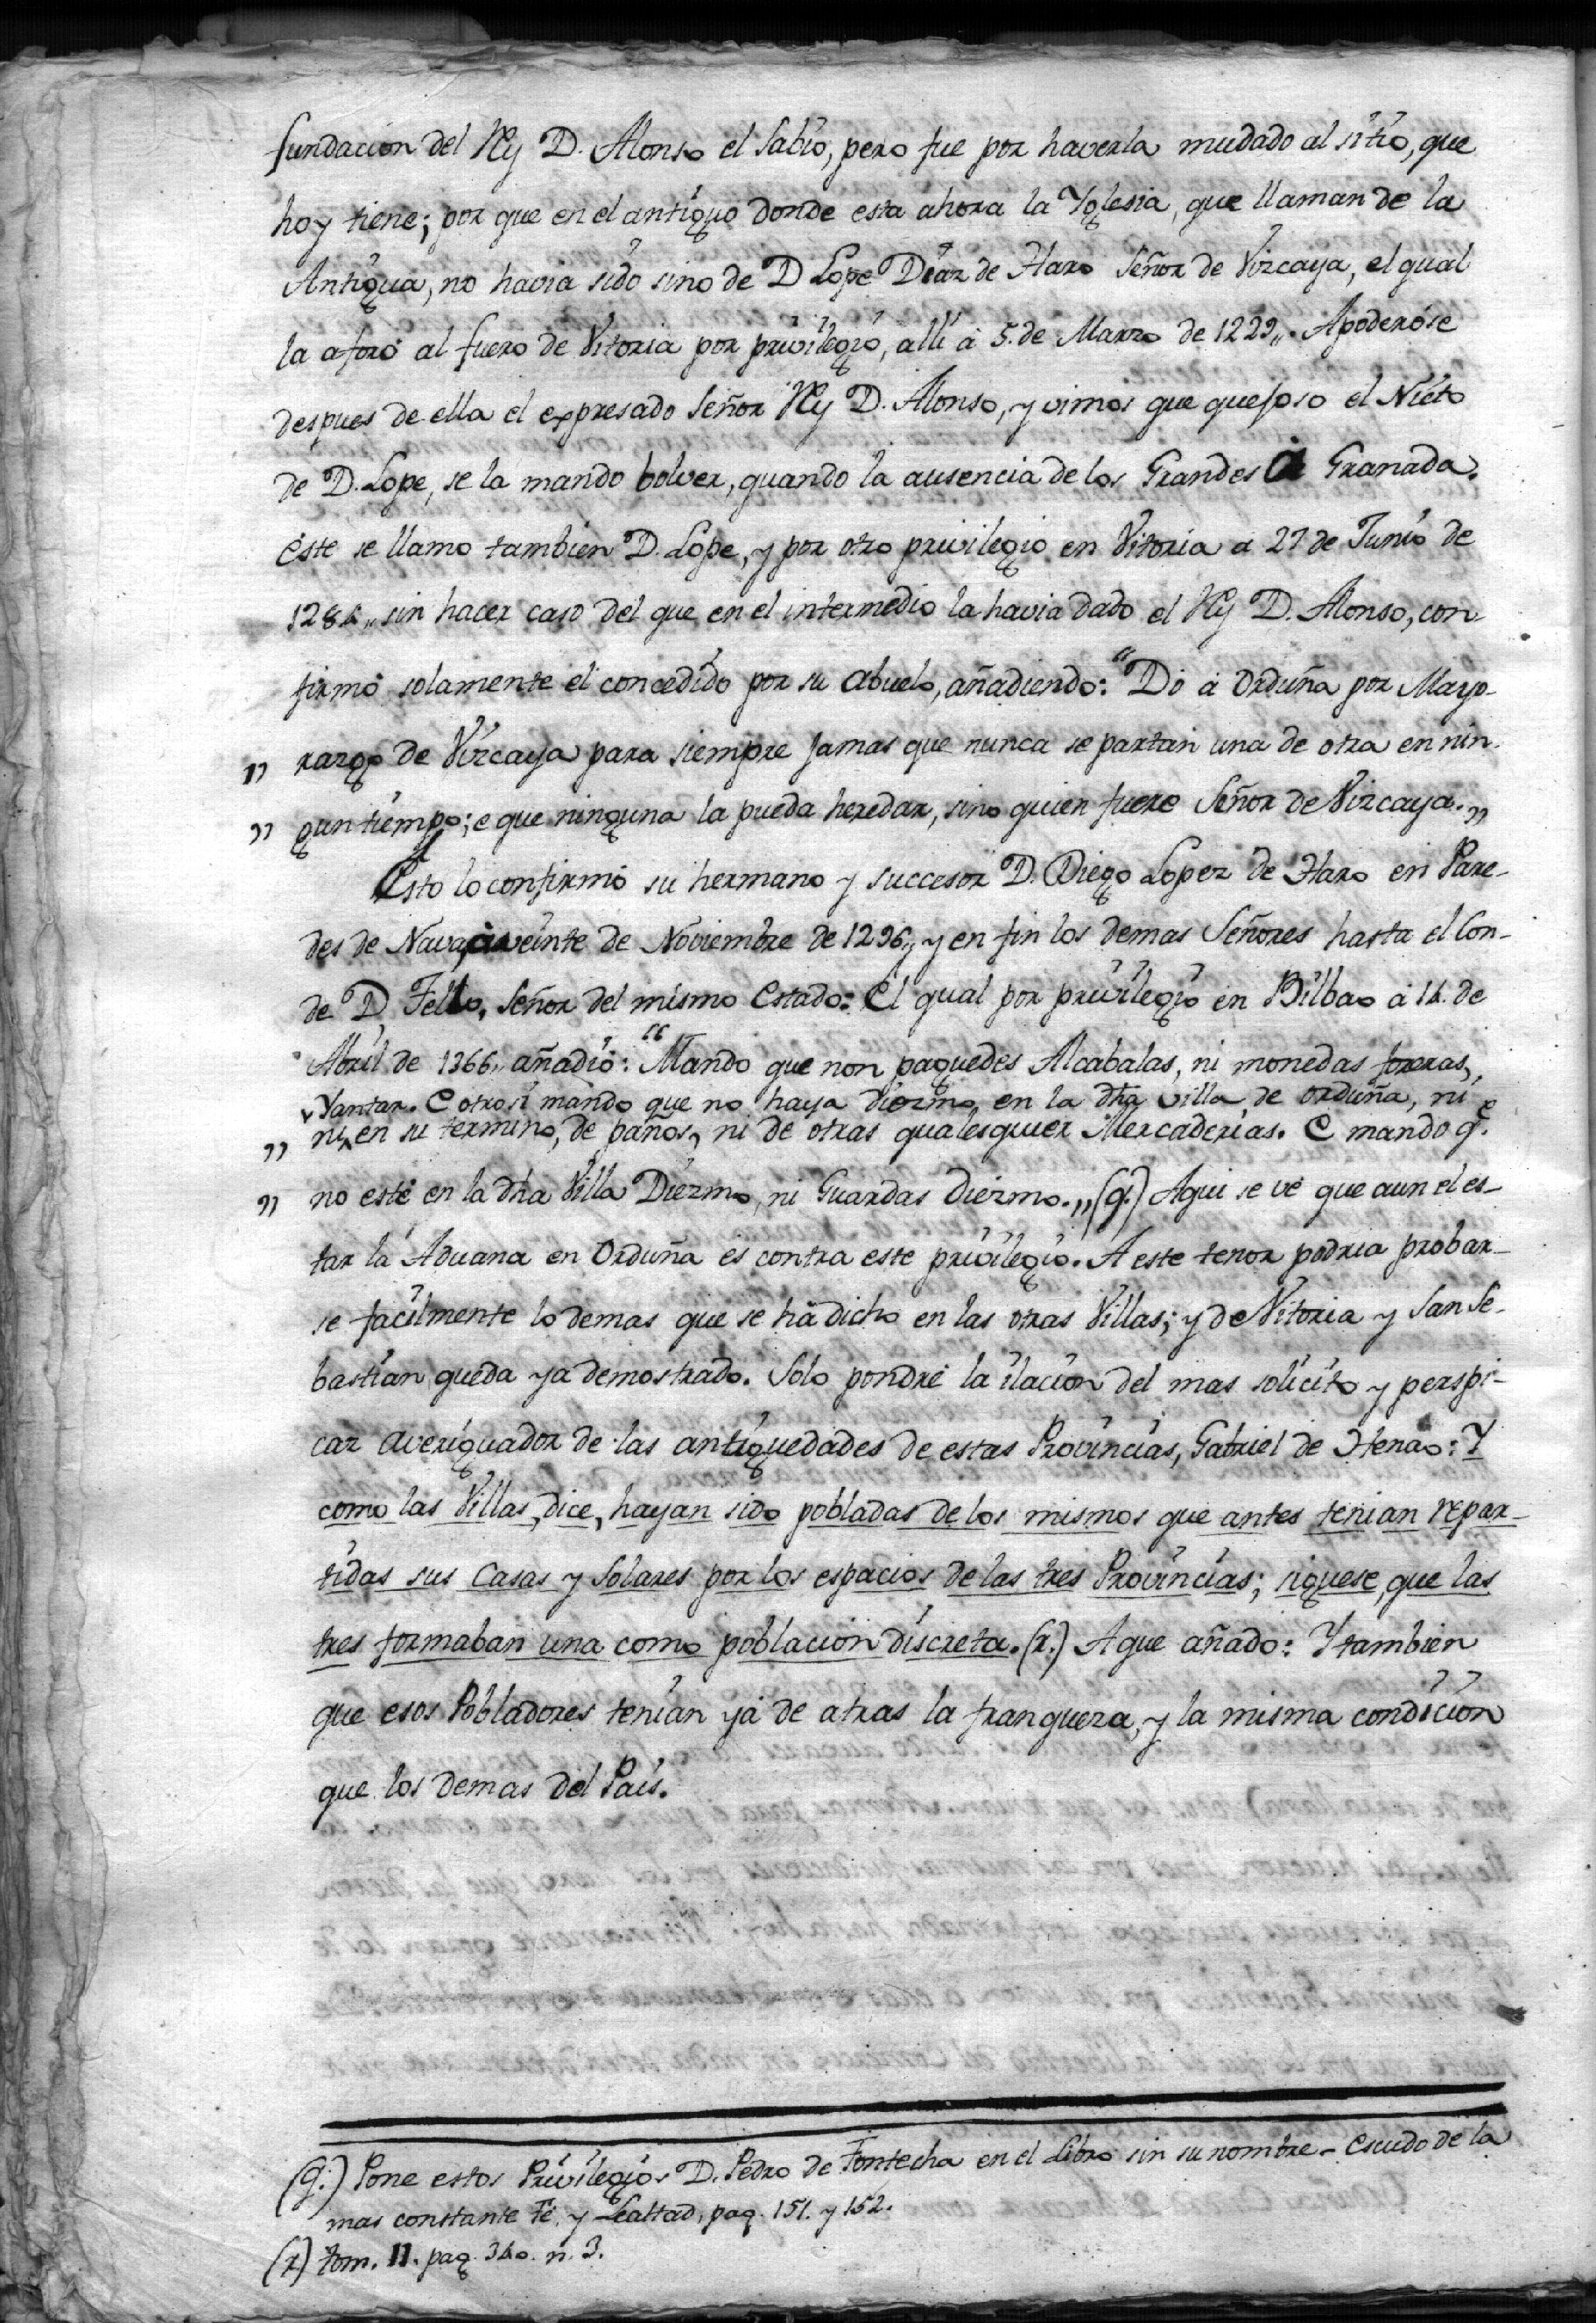 fundacion del Rey D. Alonso el Sabio, pero fue por haverla mudado al sitio, que
hoy tiene; por que en el antiguo donde esta ahora la Yglesia, que llaman de la
Antigua, no havia sido sino de D Lope Diaz de Haro Señor de Vizcaya, el qual
la aforó al fuero de Vitoria por privilegio, alli á 5. de Marzo de 1229,,. Apoderóse
despues de ella el expresado Señor Rey D. Alonso, y vimos que quejoso el Nieto
de D. Lope, se la mando bolver, quando la ausencia de los Grandes á Granada.
éste se llamo tambien D. Lope, y por otro privilegio en Vitoria á 27 de Junio de
1284,, sin hacer caso del que en el intermedio la havia dado el Rey D. Alonso, con-
firmó solamente el concedido por su abuelo, añadiendo: "Dó á Orduña por Mayo-
,, razgo de Vizcaya para siempre jamas que nunca se partan una de otra en nin-
,, gun tiempo; e que ninguna la pueda heredar, sino quien fuere Señor de Vizcaya.,,
Esto lo confirmó su hermano y succesor D. Diego Lopez de Haro en Pare-
des de Nava, á veinte de Noviembre de 1296,, y en fin los demas Señores hasta el Con-
de D. Tello, Señor del mismo Estado: El qual por privilegio en Bilbao á 14. de
Abril de 1366,, añadió: "Mando que non paguedes Alcabalas, ni monedas foreras,
Yantar. E otro si mando que no haya diezmo en la dha villa de Orduña, ni
,, ni en su termino, de paños, ni de otras qualesquier Mercaderias. E mando q.e
,, no esté en la dha Villa Diezmo, ni Guardas diezmo.,, (q.) Aqui se vé que aun el es-
tar la Aduana en Orduña es contra este privilegio. A este tenor podria probar-
se facilmente lo demas que se há dicho en las otras Villas; y de Vitoria y San Se-
bastian queda ya demostrado. Solo pondré la ilacion del mas solicito y perspi-
caz averiguador de las antiguedades de estas Provincias, Gabriel de Henao: Y
como las Villas, dice, hayan sido pobladas de los mismos que antes tenian repar-
tidas sus Casas y Solares por los espacios de las tres Provincias; siguese, que las
tres formaban una como poblacion discreta. (r.) A que añado: Y tambien
que esos Pobladores tenian yá de atras la franqueza, y la misma condicion
que los demas del Pais.
(q.) Pone estos Privilegios D. Pedro de Fontecha en el Libro sin su nombre - Escudo de la
mas constante Fé, y Lealtad, pag. 151. y 152.
(r) tom. II. pag. 340. n. 3.